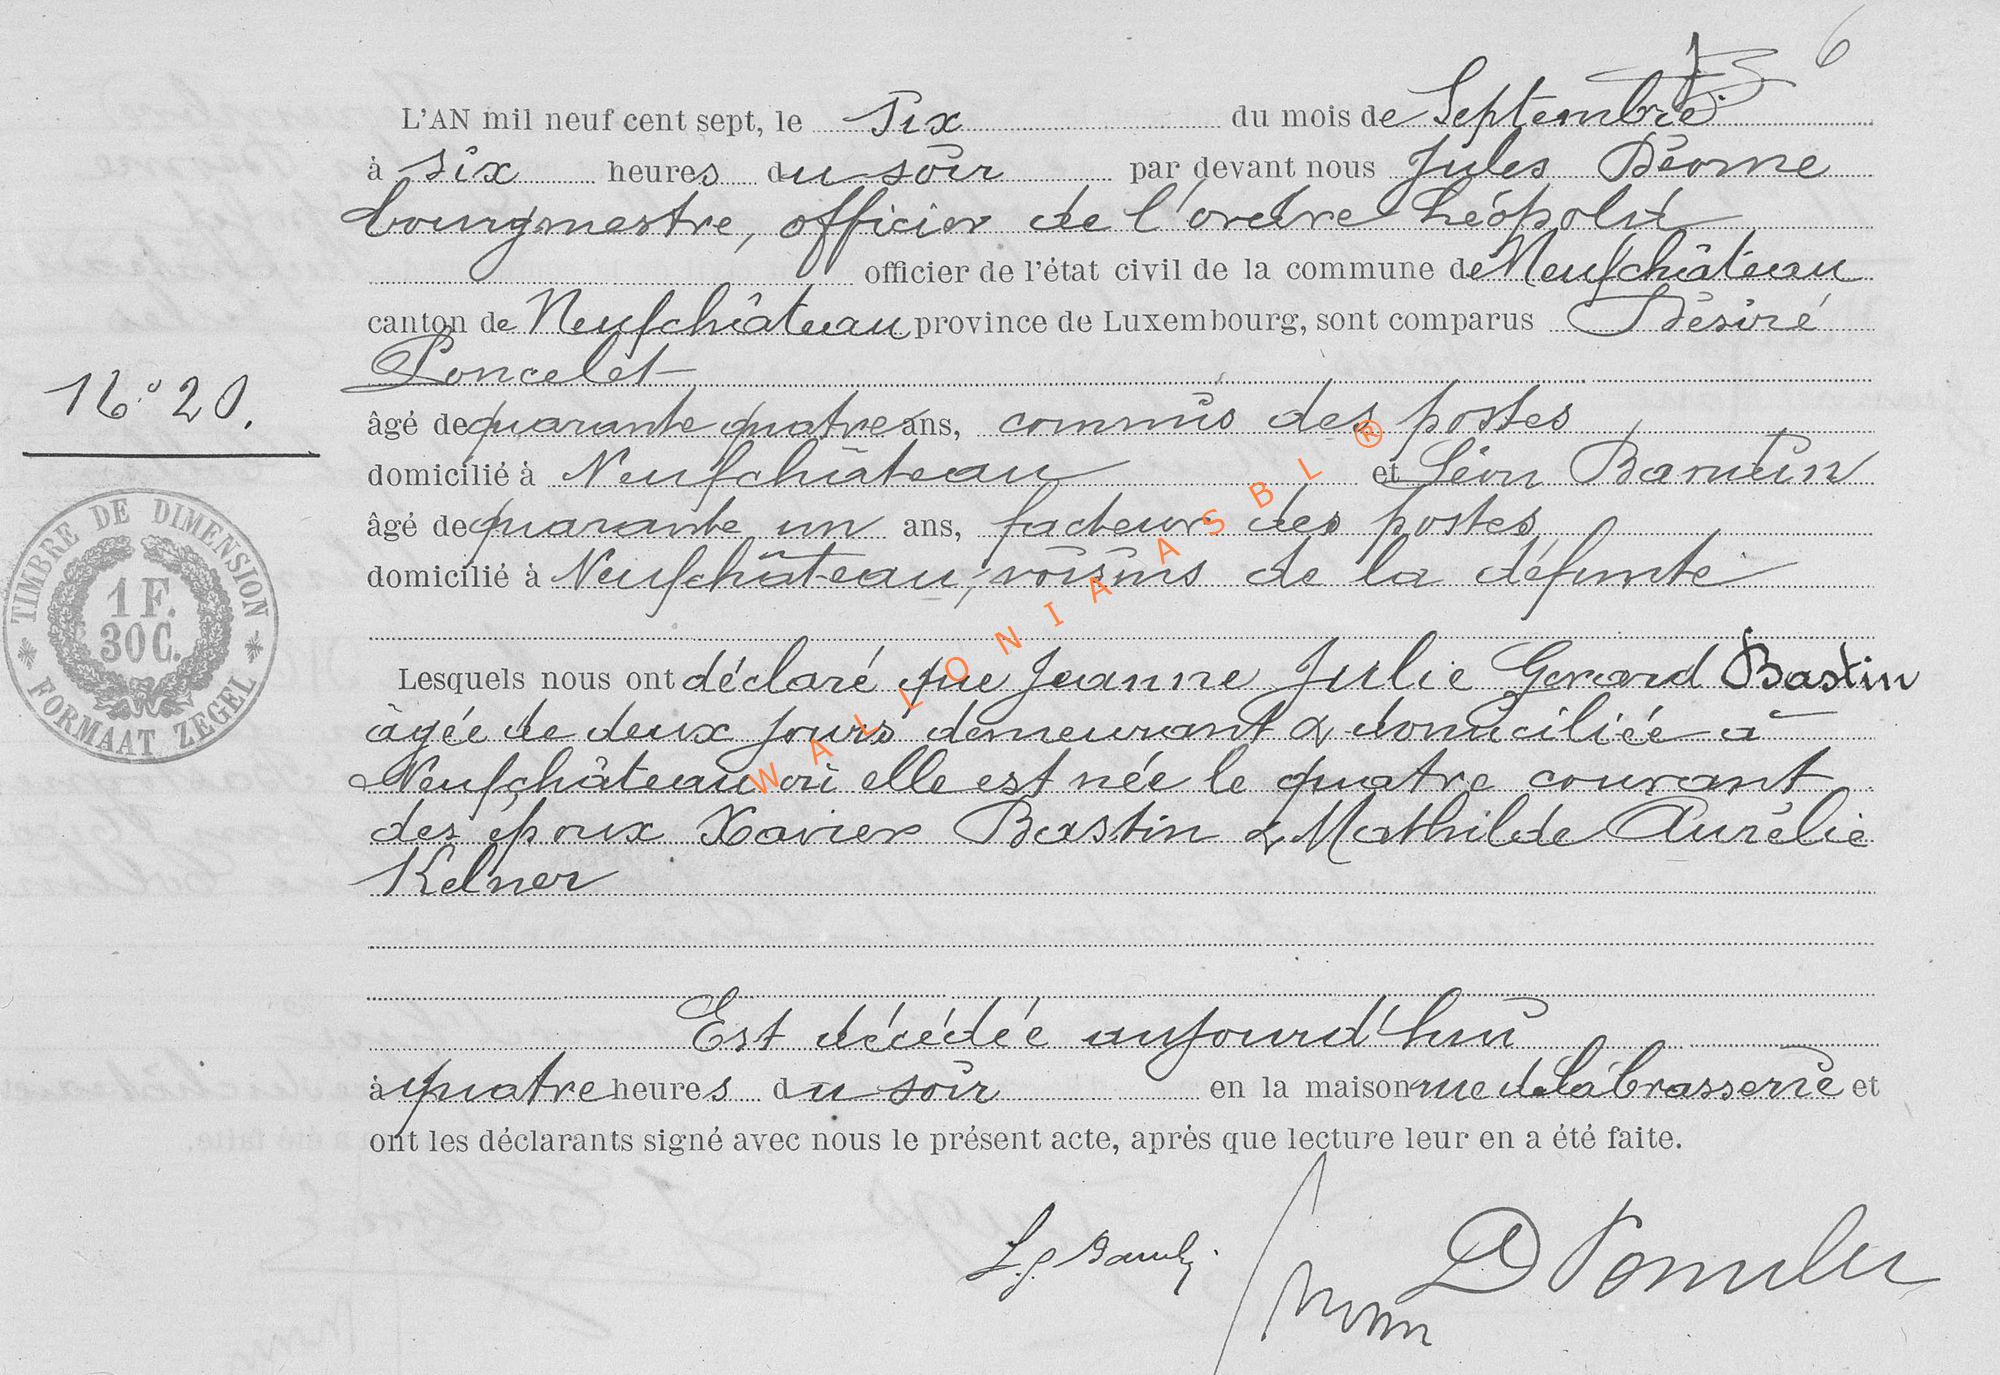 6
L'AN mil neuf cent sept, le six du mois de Septembre
à six heures du soir par devant nous Jules Déome
bourgmestre, officier de l'ordre Léopold
officier de l'état civil de la commune de Neufchâteau
canton de Neufchâteau province de Luxembourg, sont comparus Désiré
Poncelet
N° 20.
âgé de quarante quatre ans, commis des postes
domicilié à Neufchâteau et Léon
âgé de quarante un ans, facteur des postes
domicilié à Neufchâteau, voisins de la défunte
TIMBRE DE DIMENSION
1 F.
30 C.
FORMAAT ZEGEL
Lesquels nous ont déclaré que Jeanne Julie Gerard Bastin
âgée de deux jours demeurant & domiciliée à
Neufchâteau où elle est née le quatre courant
des époux Xavier Bastin & Mathilde Aurélie
Kelner
Est décédée aujourd'hui
à quatre heures du soir en la maison rue de la brasserie et
ont les déclarants signé avec nous le présent acte, après que lecture leur en a été faite.
WALLONIA ASBL ®